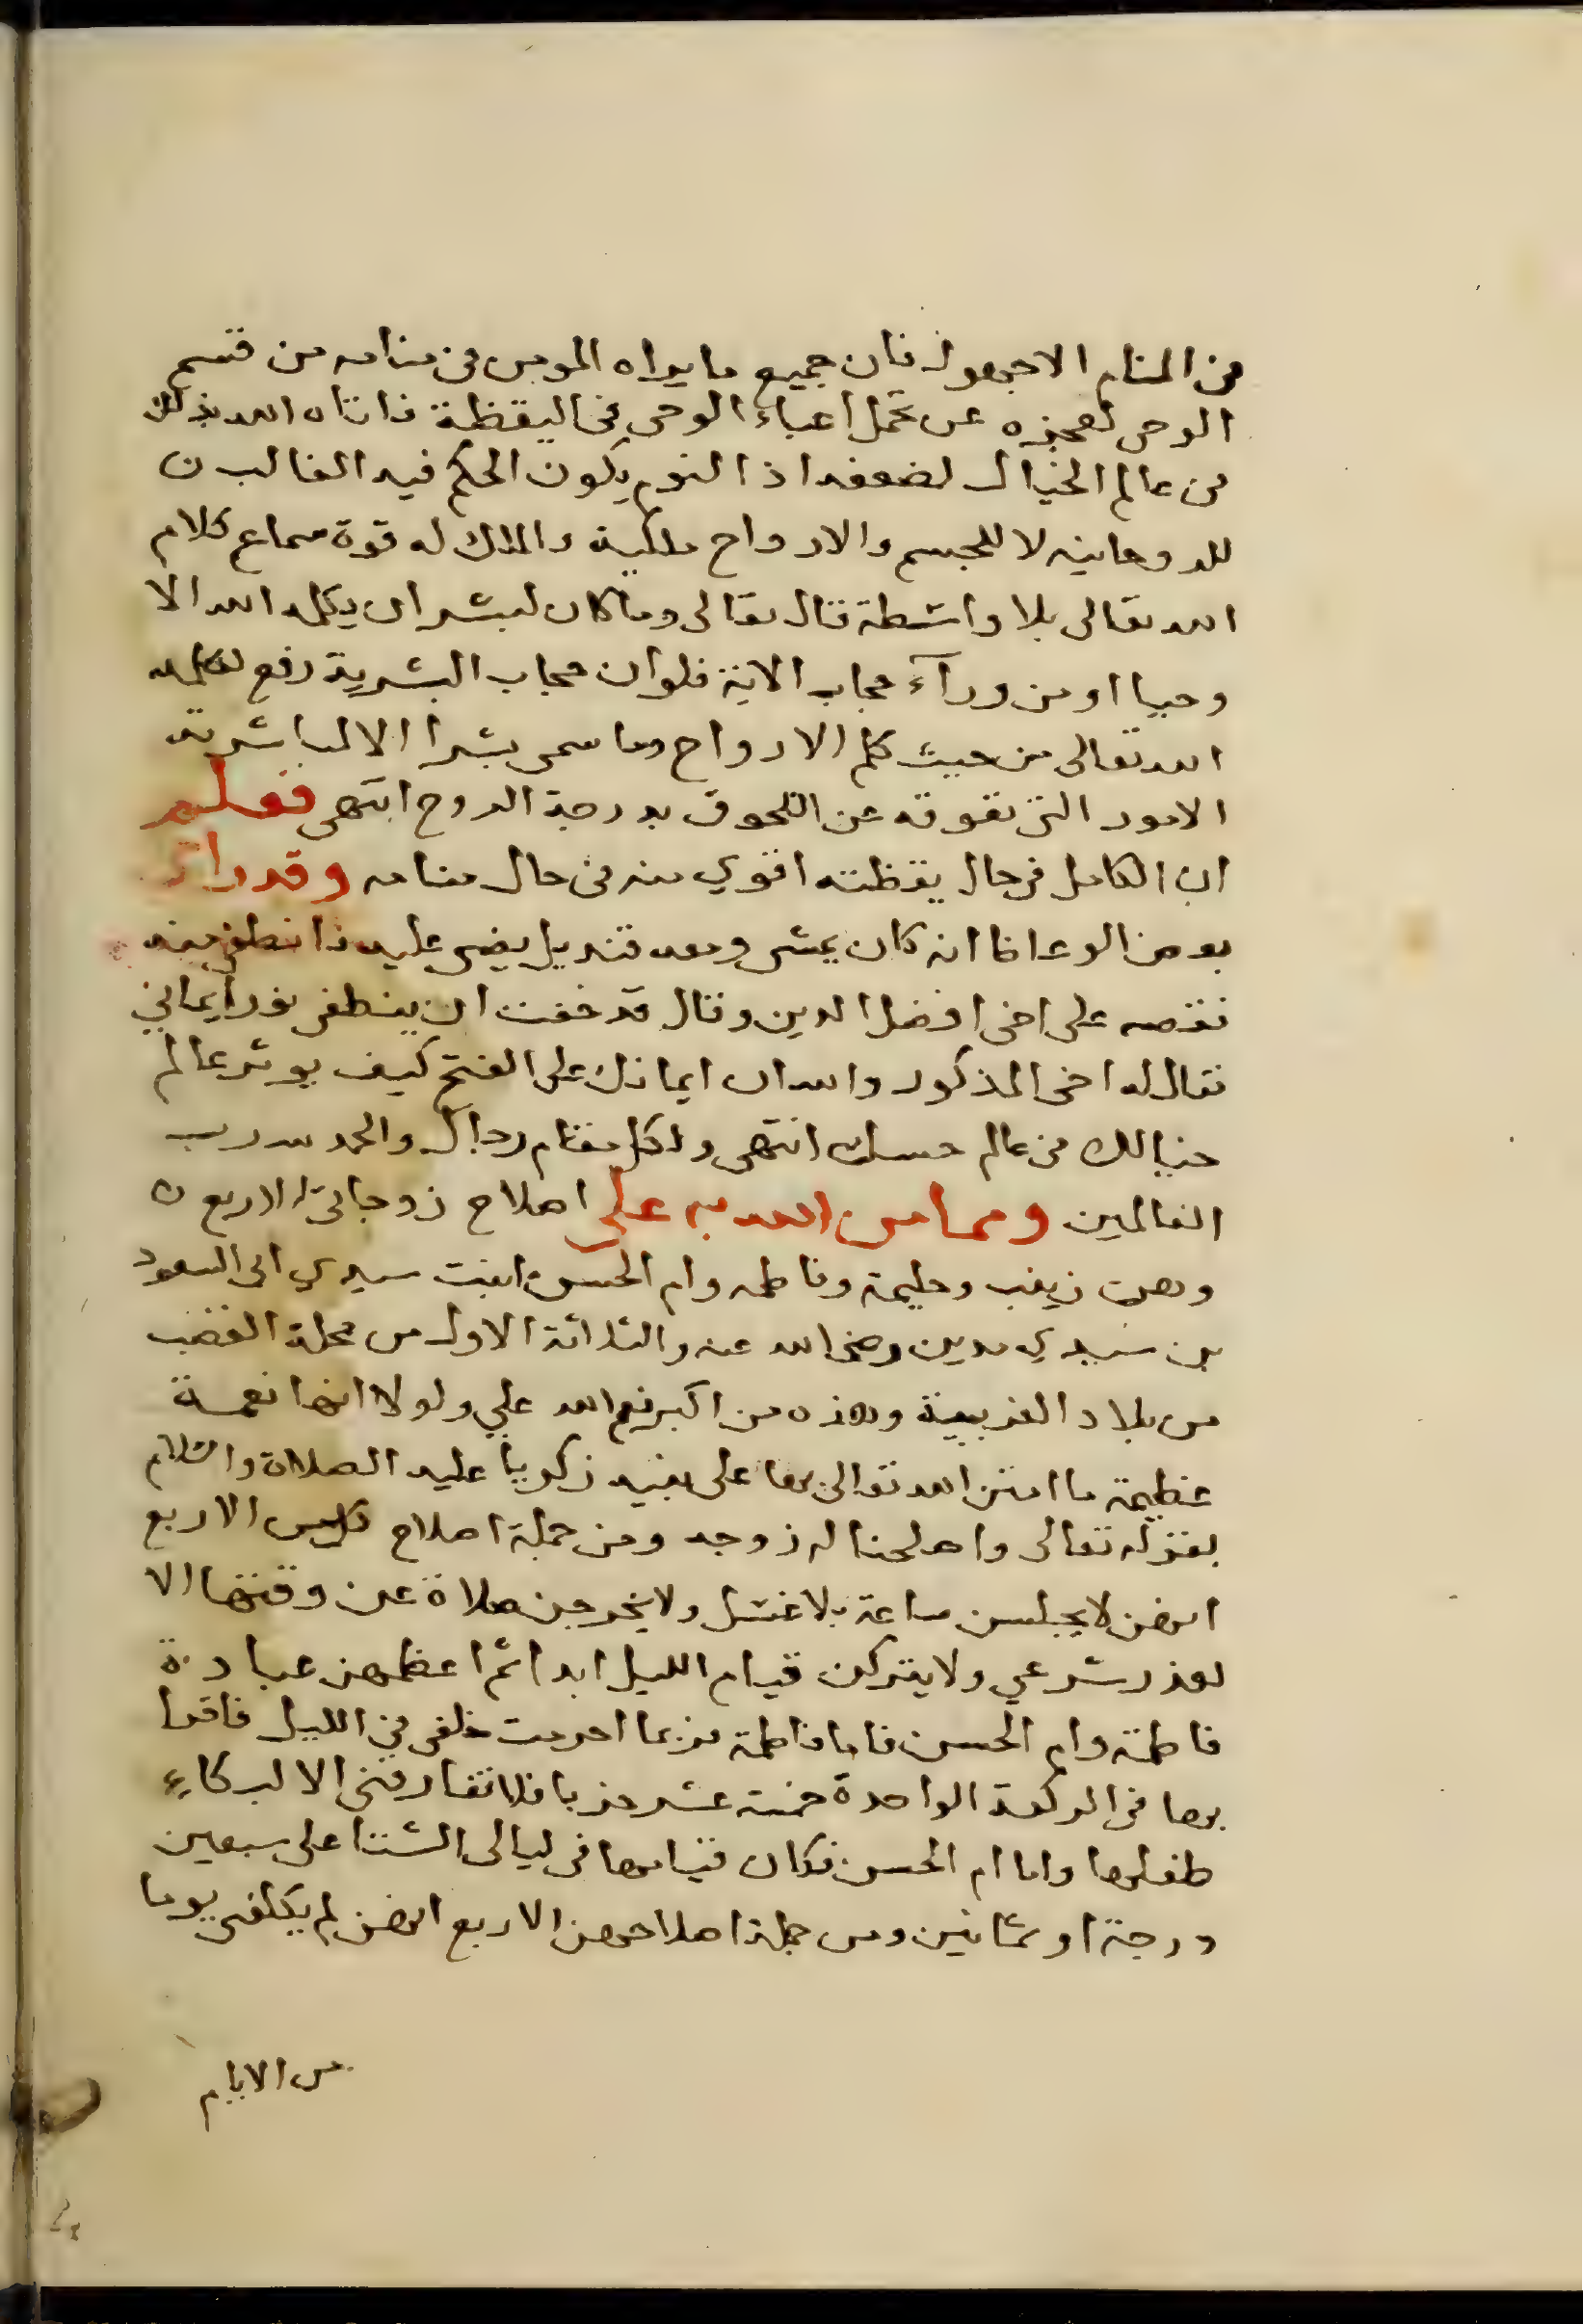 من المنام الا جهول فان جميع ما يراه المومن في منامه من قسم
الوحي لعجزه عن تحمل اعباء الوحي في اليقظة فاتاه الله بذلك
من عالم الخيال لضعفه اذ النوم يكون الحكم فيه الغالب ن
للروحانيه لا للجسم والارواح ملكية والملك له قوة سماع كلام
الله تعالى بلا واسطة قال تعالى وما كان لبشر ان يكلمه الله الا
وحيا او من ورآء حجاب الاية فلو ان حجاب البشرية رفع لكلمه
الله تعالى من حيث كلم الارواح وما سمي بشرا الا لمباشرته
الامور التي تعوقه عن اللحوق بدرجة الروح انتهى فعلم
ان الكامل في حال يقظته اقوي منه في حال منامه وقد راى
بعض الوعاظ انه كان يمشي ومعه قنديل يضي عليه فانطفى منه
فقصه على اخى افضل الدين وقال قد خفت ان ينطفى نور ايماني
فقال له اخى المذكور والله ان ايمانك على الفتح كيف يوثر عالم
خيالك في عالم حسك انتهى ولكل مقام رجال والحمد لله رب
العالمين ومما من الله به على اصلاح زوجاتى الاربع ن
وهن زينب وحليمة وفاطمه وام الحسن ابنت سيدي ابى السعود
بن سيدي مدين رضى الله عنه والثلاثة الاول من محلة القصب
من بلاد الغربية وهذه من اكبر نعم الله علي ولولا انها نعمة
عظيمة ما امتن الله تعالى بها على نبيه زكريا عليه الصلاة والسلام
بقوله تعالى واصلحنا له زوجه ومن جملة اصلاح الاربع
انهن لا يجلسن ساعة بلا غسل ولا يخرجن صلاة عن وقتها الا
لعذر شرعي ولا يتركن قيام الليل ابدا ثم اعظمهن عبادة
فاطمة وام الحسن فاما فاطمة فربما احرمت خلفى في الليل فاقرا
بها فى الركعة الواحدة خمسة عشر حزبا فلا تفارقنى الا لبكاء
طفلها واما ام الحسن فكان قيامها في ليالى الشتا على سبعين
درجة او ثمانين ومن جملة اصلاحهن الاربع انهن لم يكلفنى يوما
من الايام